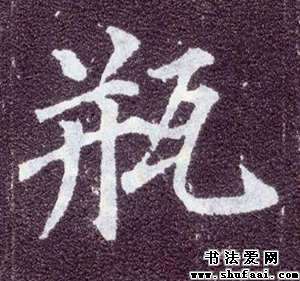 瓶
书法爱网
www.shufaai.com